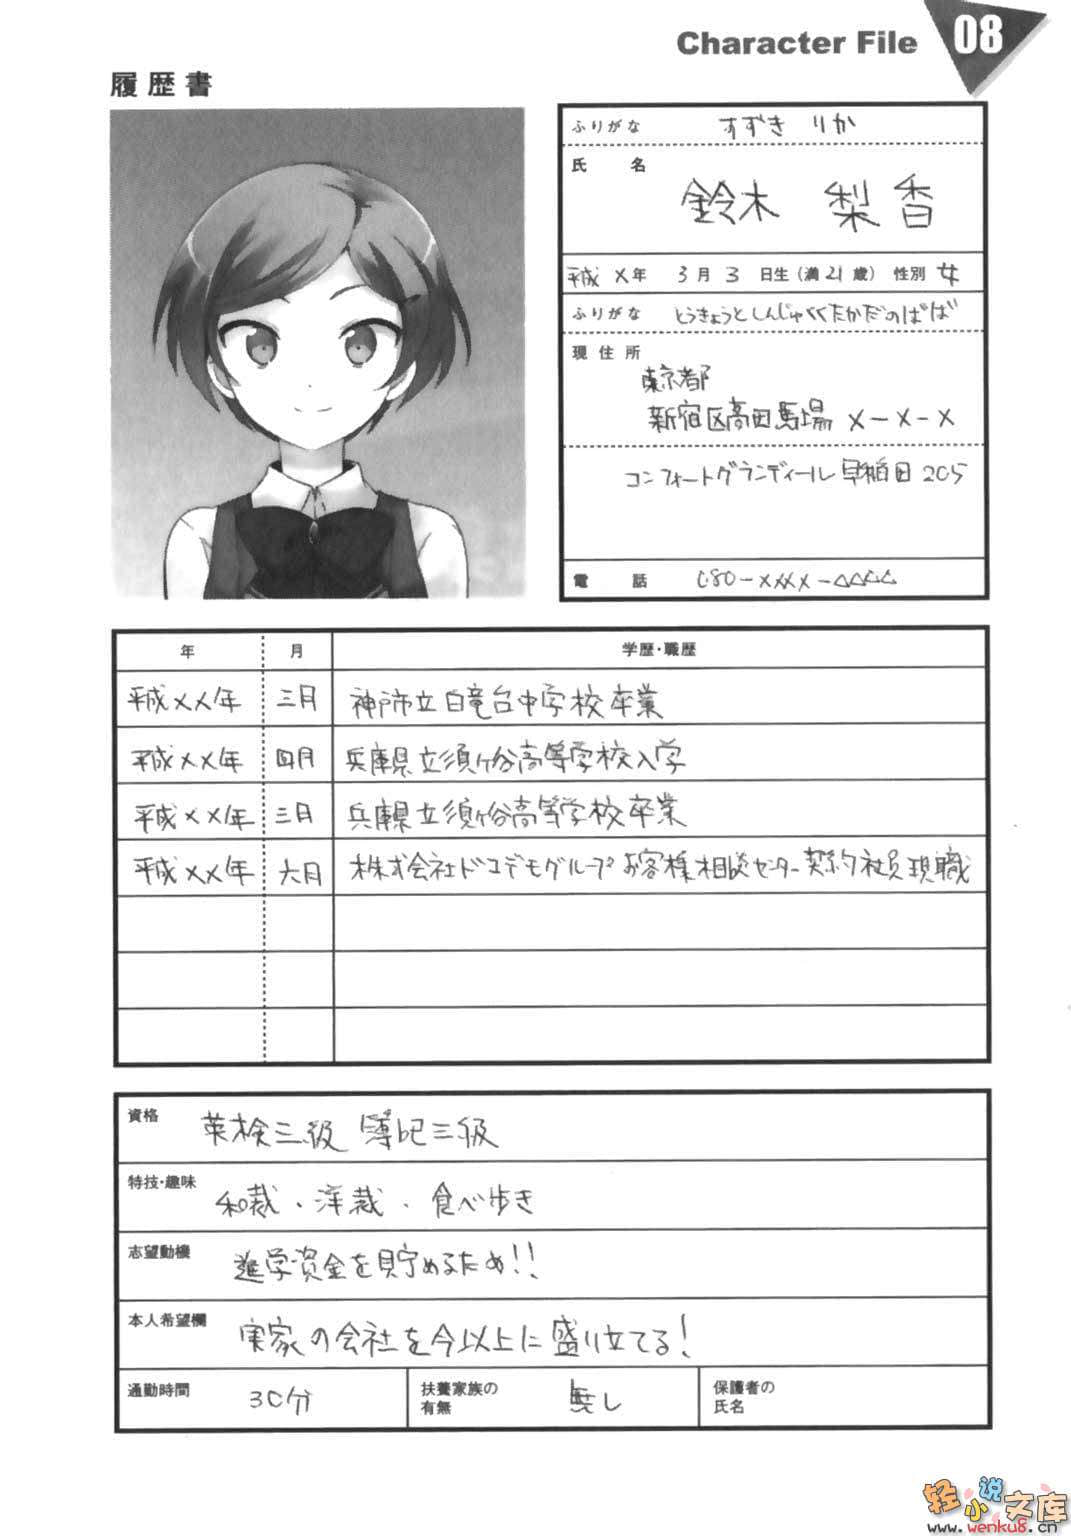 Character File 08
履歴書
ふりがな すずき りか
氏 名 鈴木 梨香
平成 ×年 3月 3日生(満21歳) 性別 女
ふりがな とうきょうとしんじゅくくたかだのばば
現住所
東京都
新宿区高田馬場 ×-×-×
コンフォートグランディール早稲田205
電 話 080-××××-△△△△
年 月 学歴・職歴
平成××年 三月 神戸市立白竜台中学校卒業
平成××年 四月 兵庫県立須ヶ谷高等学校入学
平成××年 三月 兵庫県立須ヶ谷高等学校卒業
平成××年 六月 株式会社ドコデモグループお客様相談センター契約社員現職
資格 英検三級 簿記三級
特技・趣味 和裁、洋裁、食べ歩き
志望動機 進学資金を貯めるため!!
本人希望欄 実家の会社を今以上に盛り立てる!
通勤時間 30分 扶養家族の 無し 保護者の
有無 氏名
轻小说文库
www.wenku8.cn